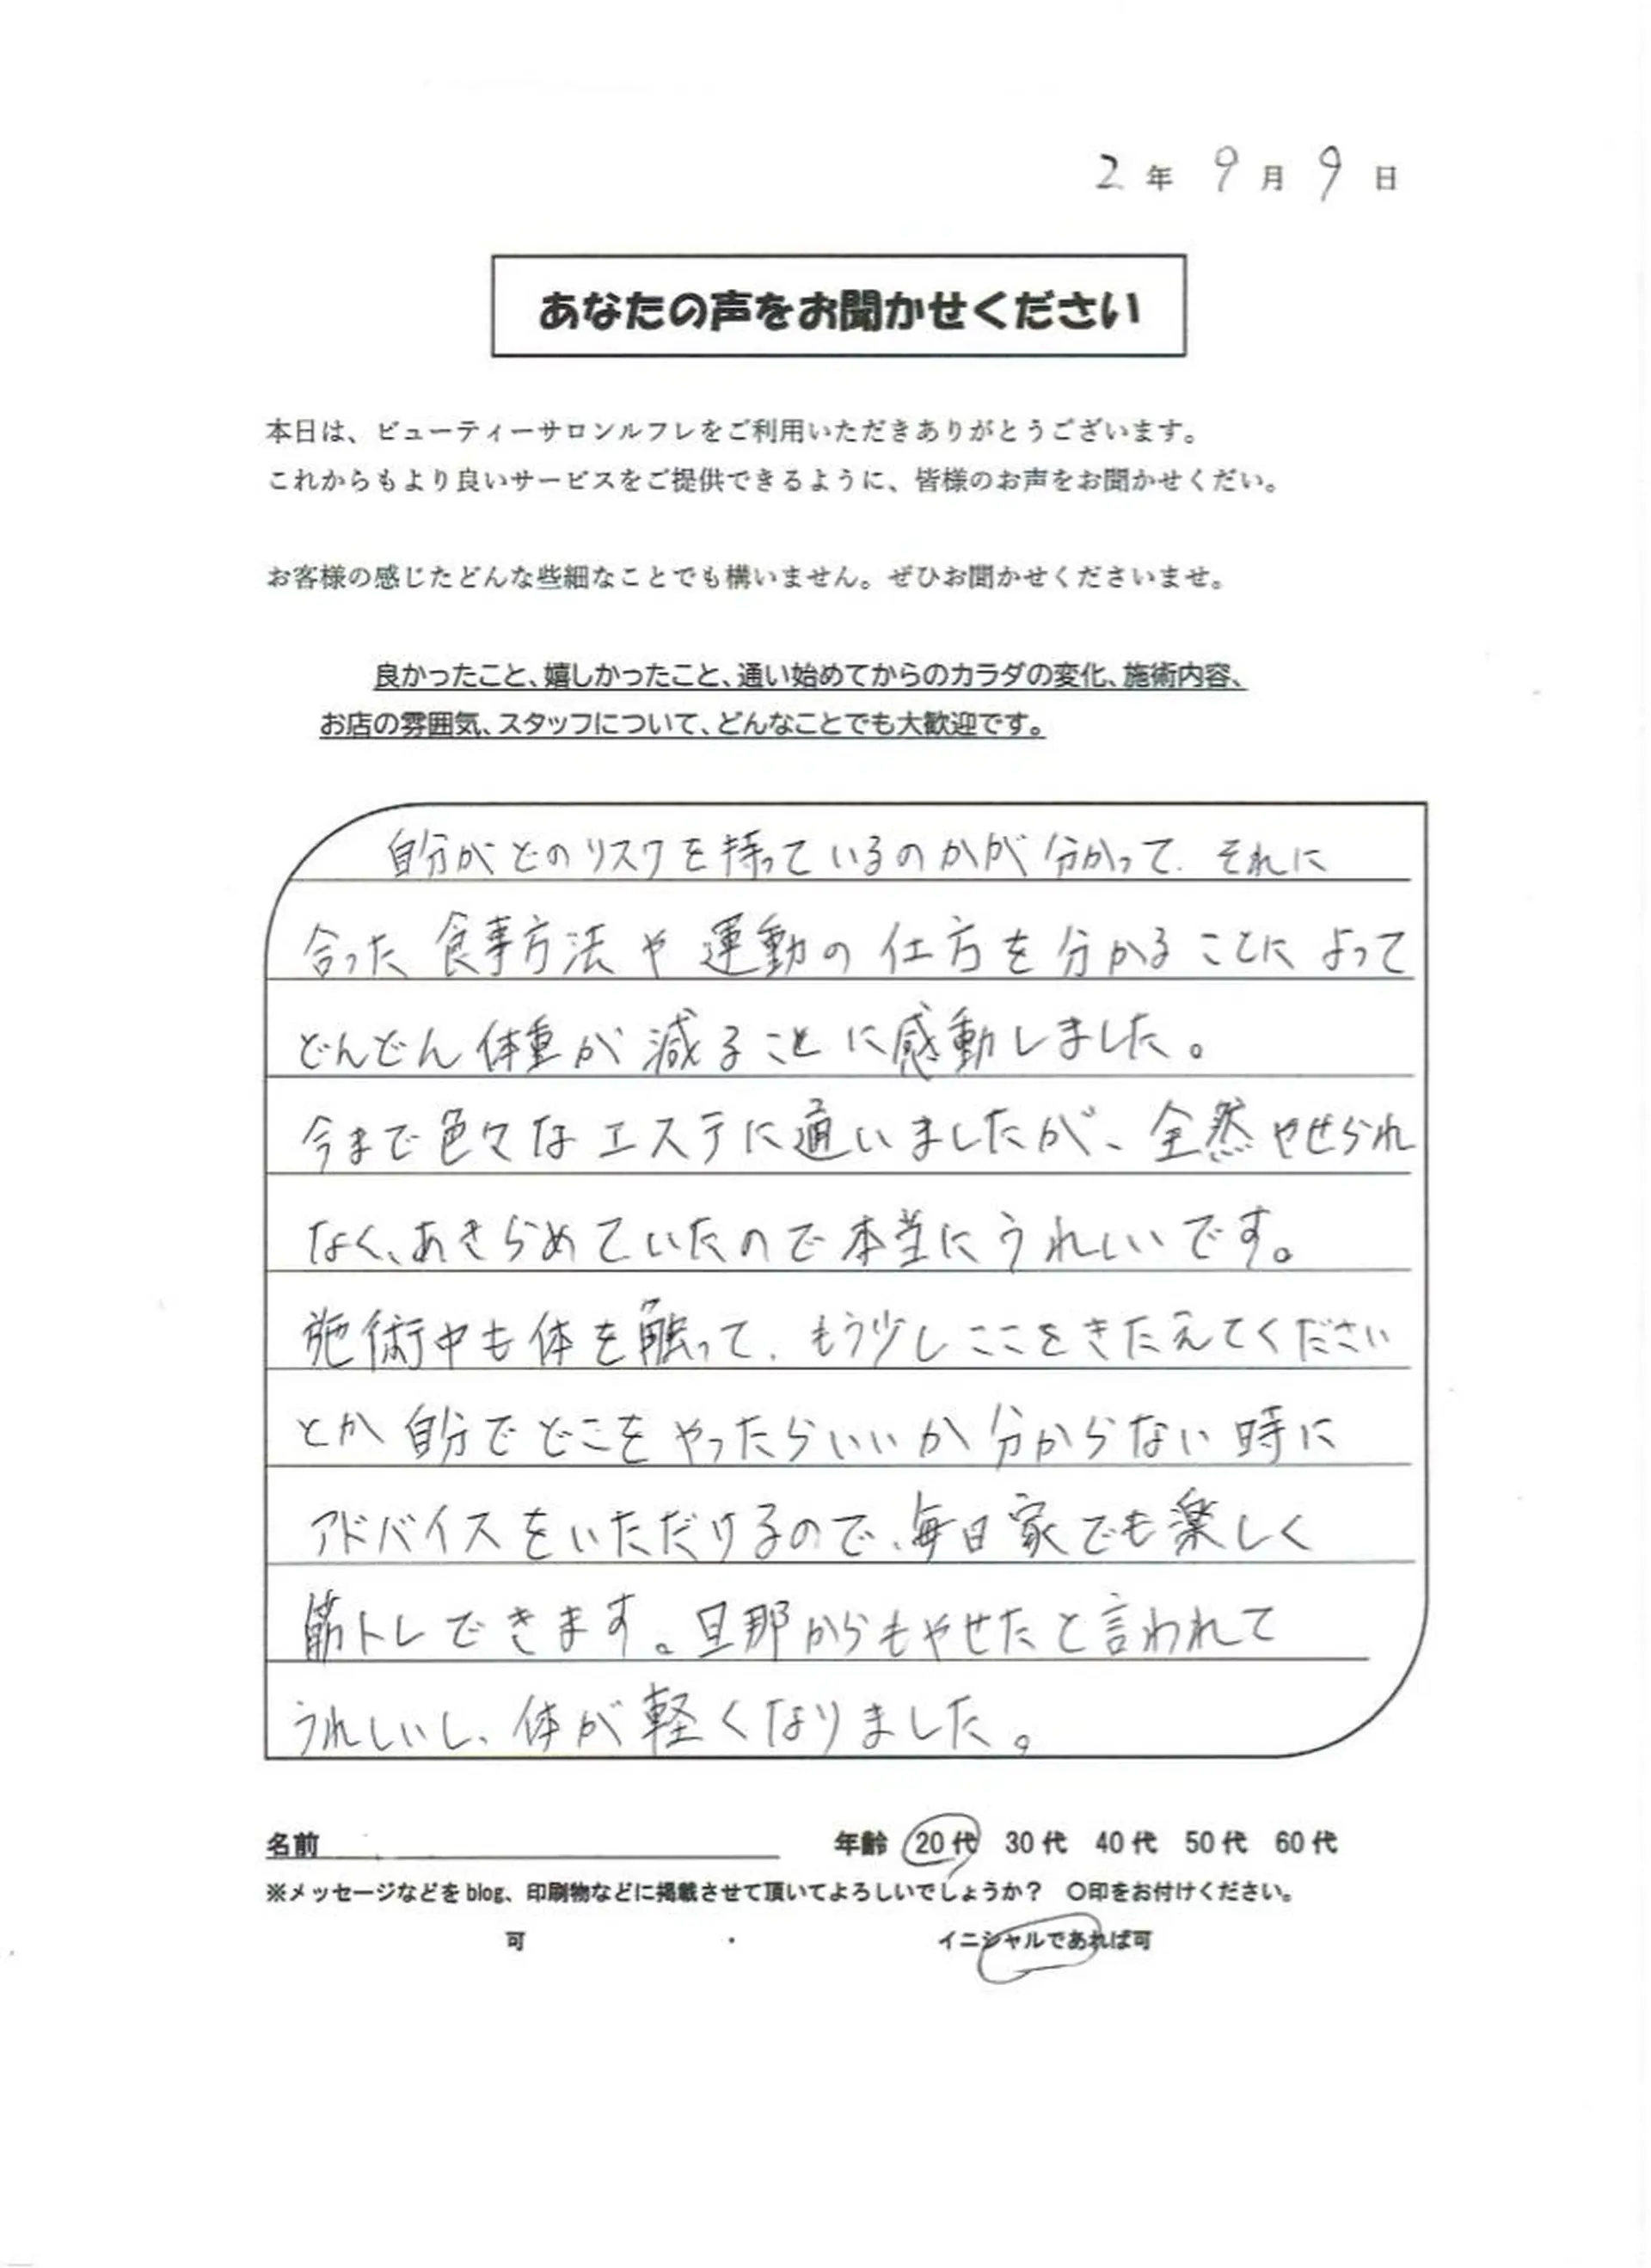 2年9月9日
あなたの声をお聞かせください
本日は、ビューティーサロンルフレをご利用いただきありがとうございます。
これからもより良いサービスをご提供できるように、皆様のお声をお聞かせくだい。
お客様の感じたどんな些細なことでも構いません。ぜひお聞かせくださいませ。
良かったこと、嬉しかったこと、通い始めてからのカラダの変化、施術内容、
お店の雰囲気、スタッフについて、どんなことでも大歓迎です。
自分がどのリスクを持っているのかが分かって、それに
合った食事方法や運動の仕方を分かることによって
どんどん体重が減ることに感動しました。
今まで色々なエステに通いましたが、全然やせられ
なく、あきらめていたので本当にうれしいです。
施術中も体を触って、もう少しここをきたえてください
とか自分でどこをやったらいいか分からない時に
アドバイスをいただけるので、毎日家でも楽しく
筋トレできます。旦那からもやせたと言われて
うれしいし、体が軽くなりました。
名前 年齢 20代 30代 40代 50代 60代
※メッセージなどをblog、印刷物などに掲載させて頂いてよろしいでしょうか？ 〇印をお付けください。
可 ・ イニシャルであれば可